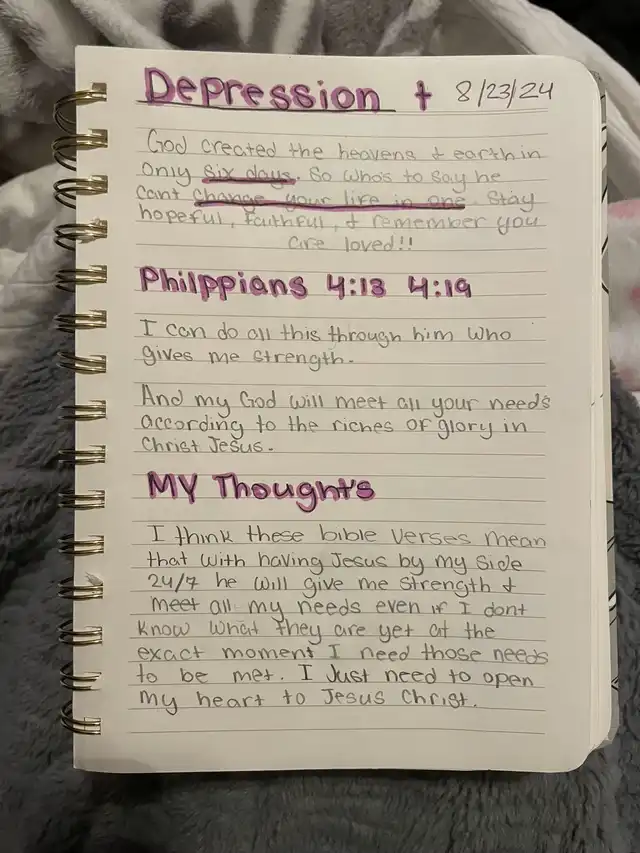 Depression ✝ 8/23/24
God created the heavens & earth in
only six days. So who's to say he
cant change your life in one. Stay
hopeful, faithful, & remember you
are loved!!
Philppians 4:13 4:19
I can do all this through him who
gives me strength.
And my God will meet all your needs
according to the riches of glory in
Christ Jesus.
MY Thoughts
I think these bible verses mean
that with having Jesus by my side
24/7 he will give me strength &
meet all my needs even if I dont
know what they are yet at the
exact moment I need those needs
to be met. I Just need to open
my heart to Jesus Christ.